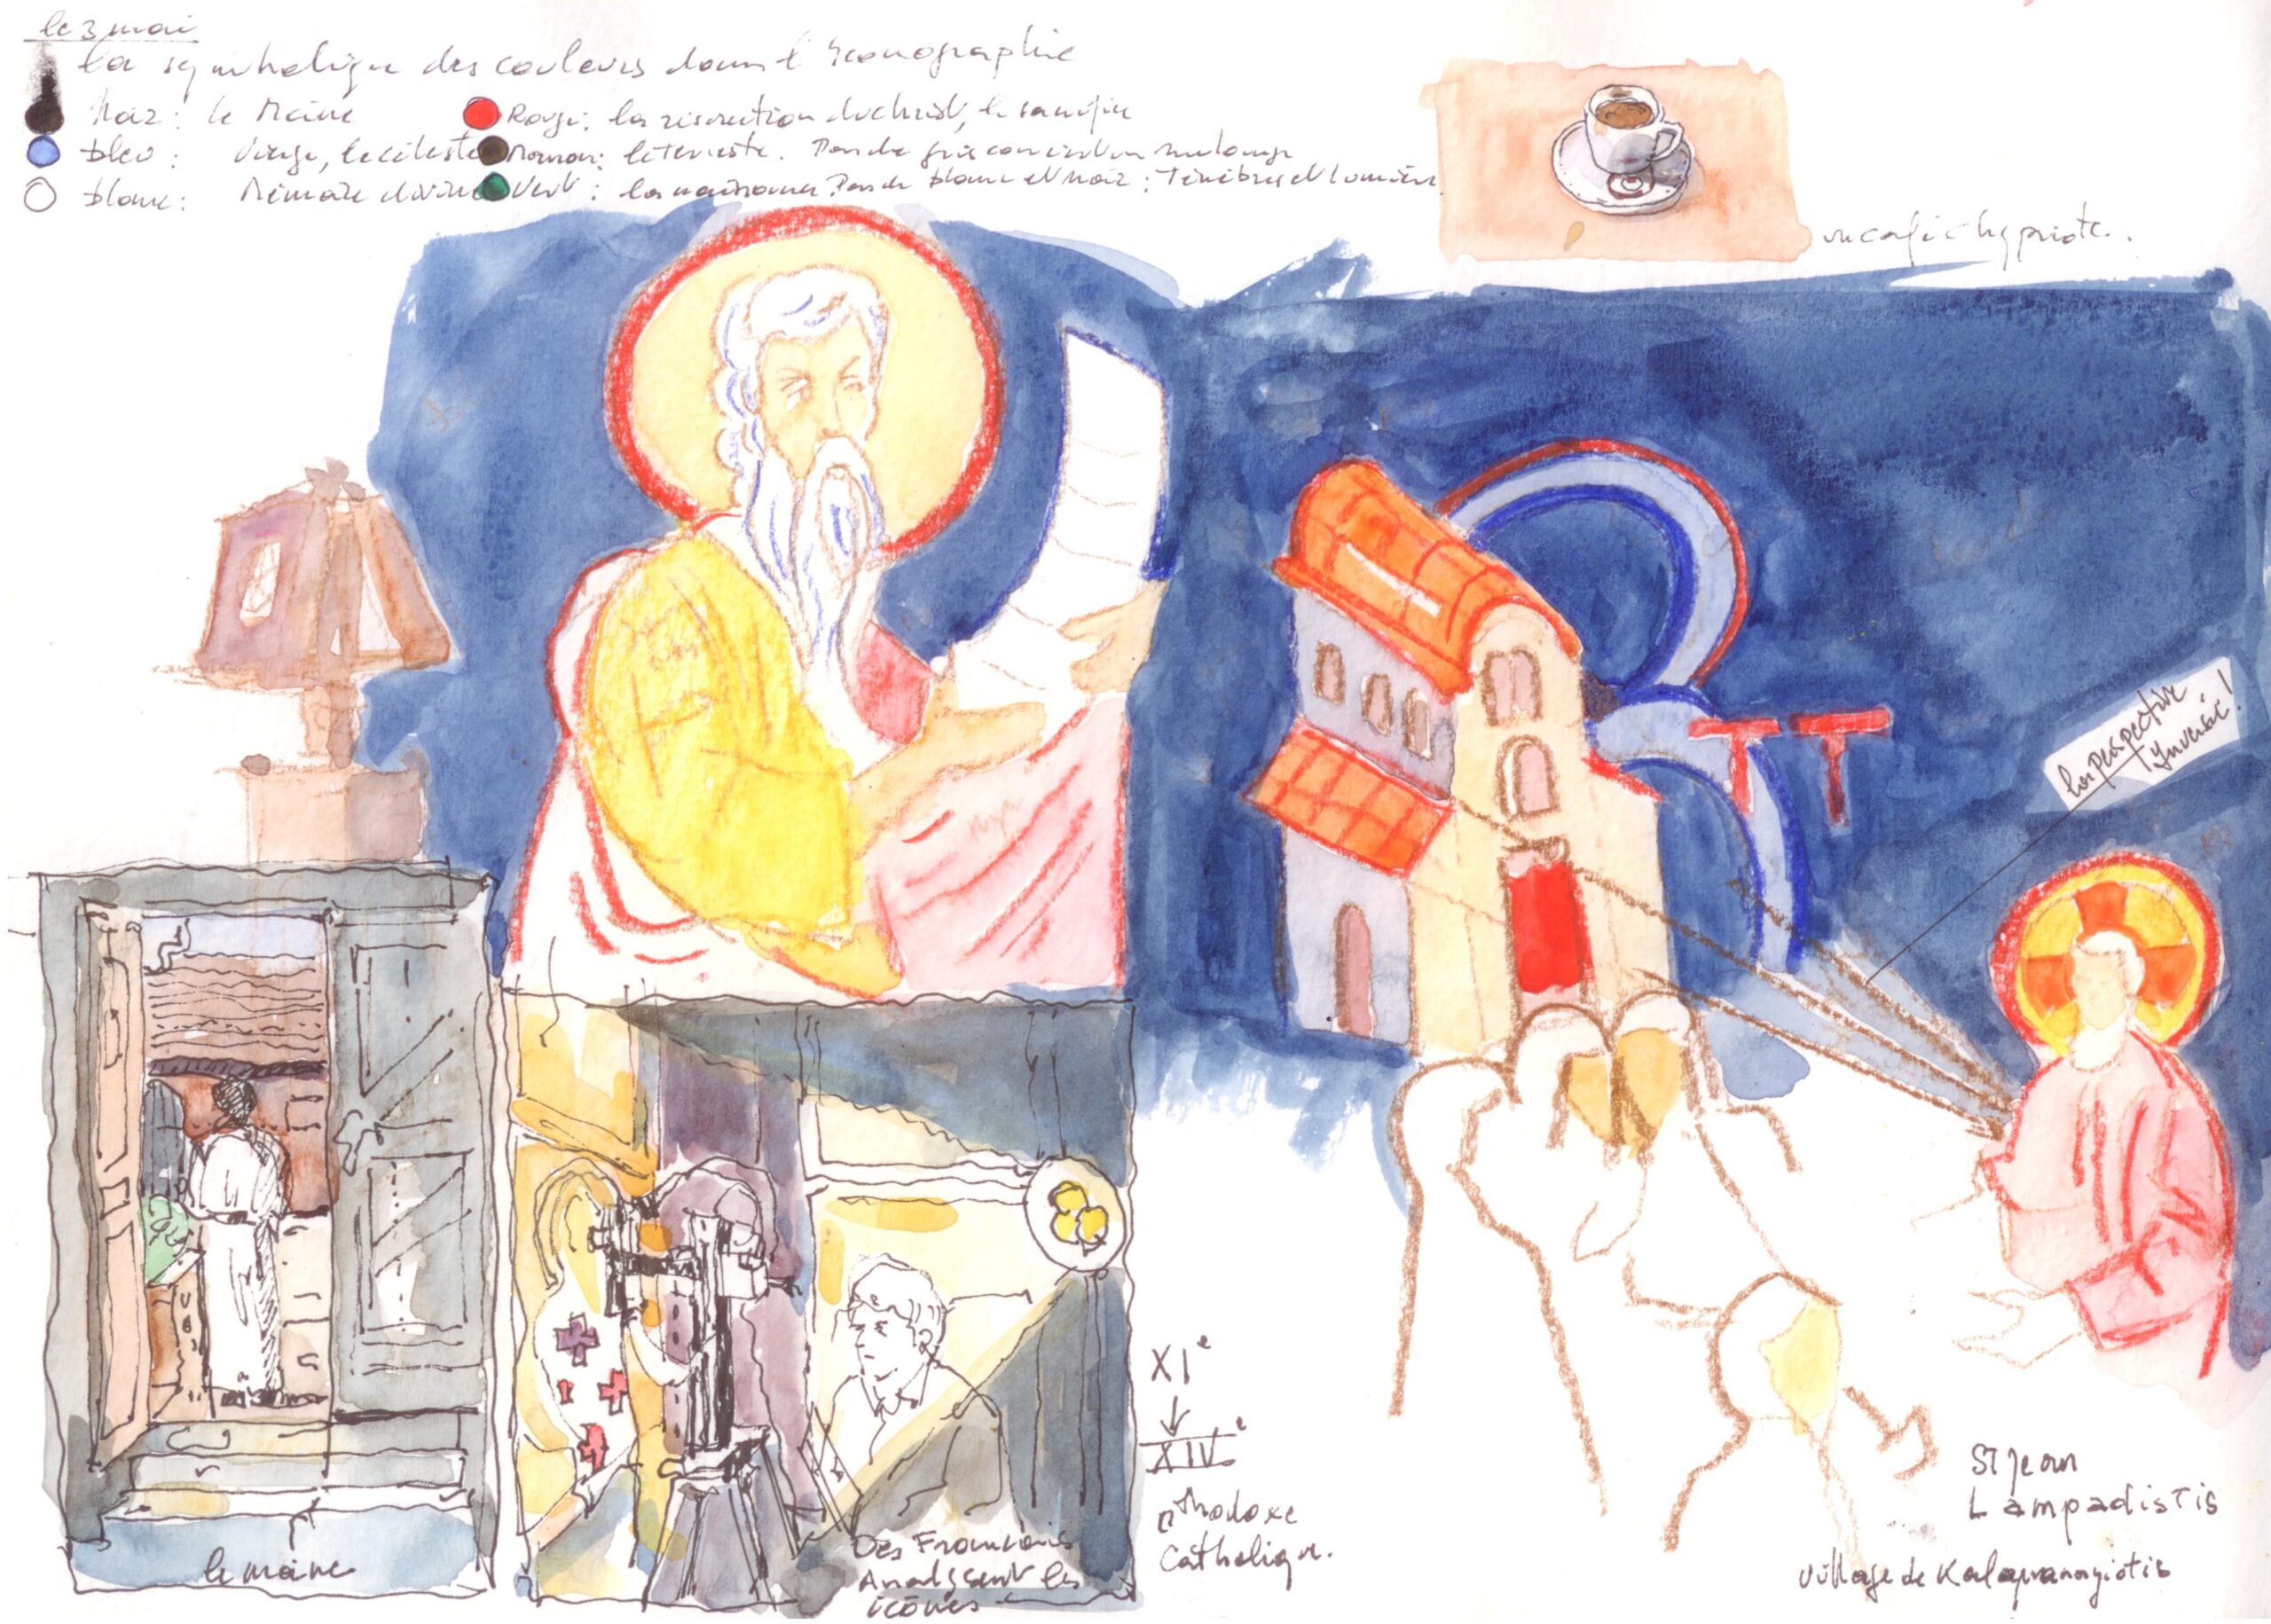 le 3 mai
la symbolique des couleurs dans l'Iconographie
Noir: le Moine
Rouge: la résurection du christ, le sacrifice
bleu: Vierge, le céleste
Marron: le terrestre. Pas de gris car c'est un mélange
blanc: divine
Vert: la naissance. Pas de blanc et noir: Ténèbres et lumière.
un café chypriote.
la perspective
Inversée!
XIe
XIVe
orthodoxe
Catholique.
St Jean
Lampadistis
village de Kalapanagiotis
le moine
Des Francais
Analysent les
icônes